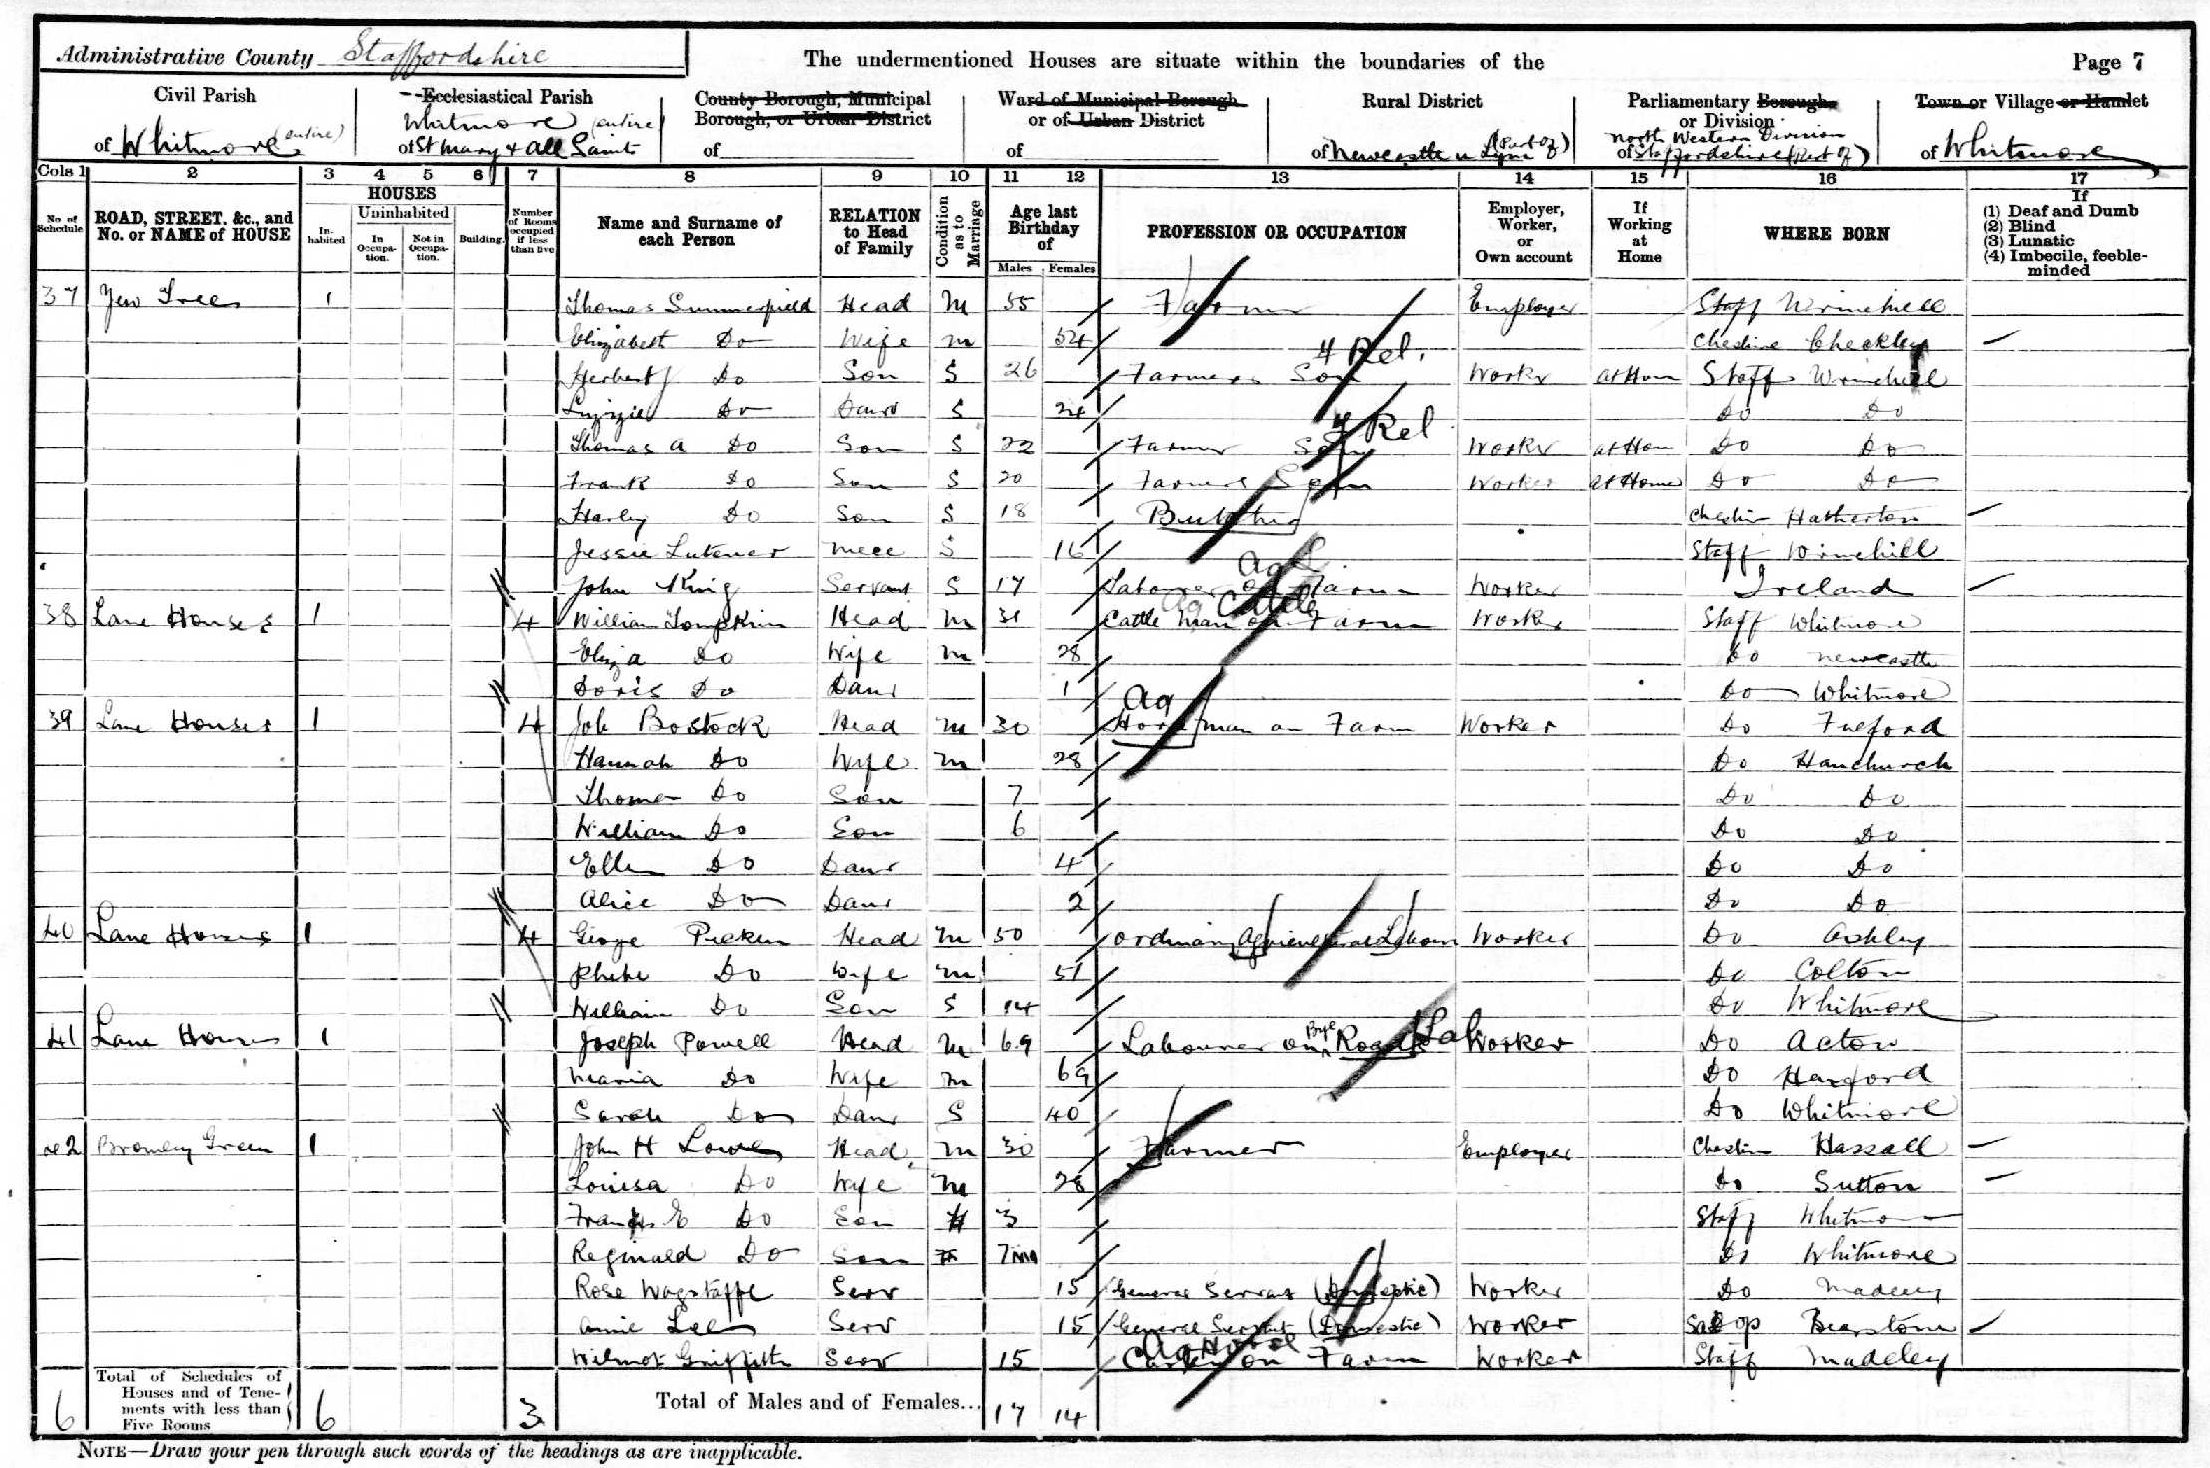 Administrative County Staffordshire
The undermentioned Houses are situate within the boundaries of the
Page 7
Civil Parish of Whitmore (entire)
Ecclesiastical Parish Whitmore (entire) of St Mary & All Saints
County Borough, Municipal Borough, or Urban District of
Ward of Municipal Borough or of Urban District of
Rural District of Newcastle u Lyme (Part of)
Parliamentary Borough or Division North Western Division of Staffordshire (Part of)
Town or Village or Hamlet of Whitmore
Cols 1 2 3 4 5 6 7 8 9 10 11 12 13 14 15 16 17
No. of Schedule
ROAD, STREET, &c., and No. or NAME of HOUSE
HOUSES
In-habited
Uninhabited
In Occupa-tion.
Not in Occupa-tion.
Building.
Number of Rooms occupied if less than five
Name and Surname of each Person
RELATION to Head of Family
Condition as to Marriage
Age last Birthday of
Males Females
PROFESSION OR OCCUPATION
Employer, Worker, or Own account
If Working at Home
WHERE BORN
If
(1) Deaf and Dumb
(2) Blind
(3) Lunatic
(4) Imbecile, feeble-minded
37 Yew Trees 1 Thomas Summerfield Head M 55 Farmer Employer Staff Wrinehill
Elizabeth Do Wife M 54 Cheshire Checkley
Herbert J Do Son S 26 Farmers Son 4 Rel. Worker at Home Staff Wrinehill
Lizzie Do Daur S 24 Do Do
Thomas A Do Son S 22 Farmer Son 4 Rel Worker at Home Do Do
Frank Do Son S 20 Farmers Son Worker at Home Do Do
Harley Do Son S 18 Cheshire Hatherton
Jessie Niece S 16 Staff Wrinehill
John King Servant S 17 Labourer on Farm Agl Worker Ireland
38 Lane Houses 1 4 William Tompkin Head M 31 Cattle man on Farm Ag Cattle Worker Staff Whitmore
Eliza Do Wife M 28 Do Newcastle
Doris Do Daur 1 Do Whitmore
39 Lane Houses 1 4 Job Bostock Head M 30 Horseman on Farm Ag Worker Do Fulford
Hannah Do Wife M 28 Do Hanchurch
Thomas Do Son 7 Do Do
William Do Son 6 Do Do
Ellen Do Daur 4 Do Do
Alice Do Daur 2 Do Do
40 Lane Houses 1 4 George Picken Head M 50 Ordinary Agricultural Labourer Worker Do Ashley
Phebe Do Wife M 51 Do Colton
William Do Son S 14 Do Whitmore
41 Lane Houses 1 Joseph Powell Head M 69 Labourer on Bye Roads Lab Worker Do Acton
Maria Do Wife M 69 Do
Sarah Do Daur S 40 Do Whitmore
42 Bromley Green 1 John H Lowe Head M 30 Farmer Employer Cheshire Hassall
Louisa Do Wife M 28 Do Sutton
Francis E Do Son 3 Staff Whitmore
Reginald Do Son 7 mo Do Whitmore
Rose Wagstaffe Serv 15 General Servant (Domestic) Worker Do Madeley
Annie Lee Serv 15 General Servant (Domestic) Worker Salop Bearstone
Wilmot Griffiths Serv 15 Carter on Farm Ag Horse Worker Staff Madeley
6 Total of Schedules of Houses and of Tene-ments with less than Five Rooms 6 3 Total of Males and of Females... 17 14
NOTE—Draw your pen through such words of the headings as are inapplicable.